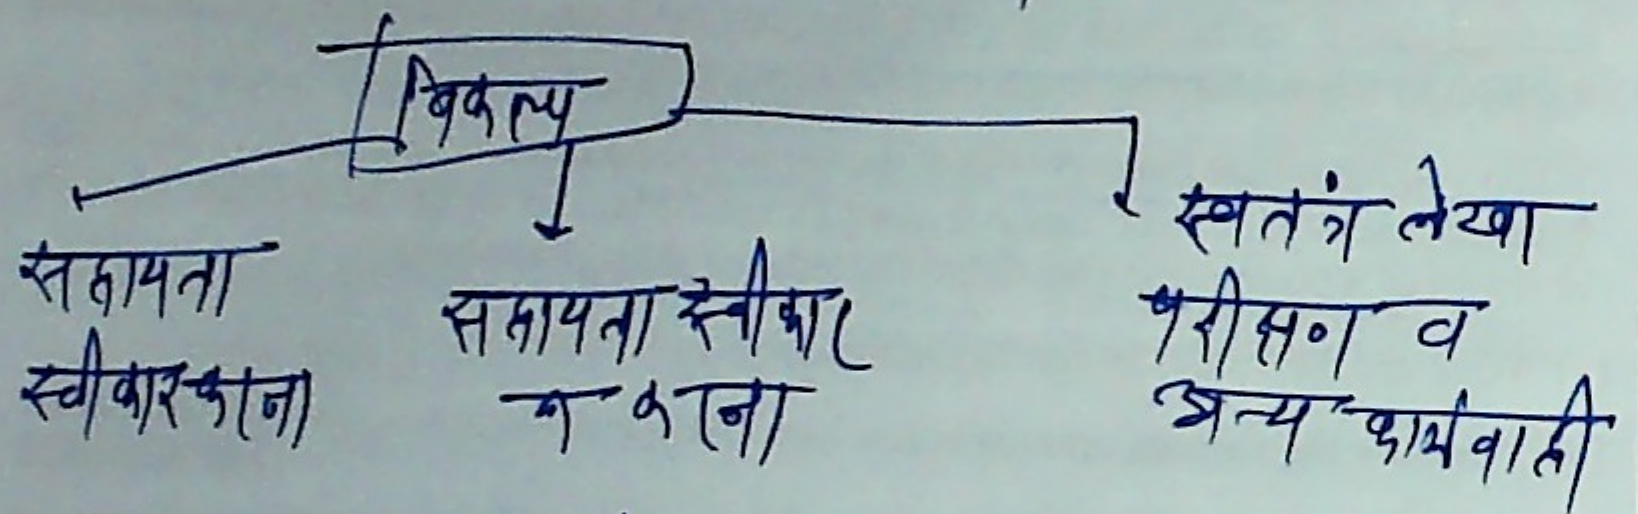 विकल्प
सहायता
स्वीकार करना
सहायता स्वीकार
न करना
स्वतंत्र लेखा
परीक्षण व
अन्य कार्यवाही